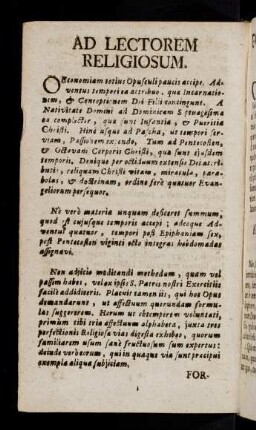 AD LECTOREM
RELIGIOSUM.
OEconomiam totius Opusculi paucis accipe. Ad-
ventus tempori ea attribuo, quæ Incarnatio-
nem, & Conceptionem Dei Filii contingunt. A
Nativitate Domini ad Dominicam Septuagesima
ea complector, quæ sunt Infantiæ, & Pueritiæ
Christi. Hinc usque ad Pascha, ut tempori ser-
viam, Passionem excudo, Tum ad Pentecosten,
& Octavam Corporis Christi, quæ sunt ejusdem
temporis, Denique per octiduum extensis Dei attri-
butis, reliquam Christi vitam, miracula, para-
bolas, & doctrinam, ordine ferè quatuor Evan-
geliorum persequor.
Ne verò materia unquam deficeret summum,
quod est cujusque temporis accepi; adeoque Ad-
ventui quatuor, tempori post Epiphaniam sex,
post Pentecosten viginti octo integras hebdomadas
assignavi.
Non adjicio meditandi methodum, quam vel
passim habes, vel ex ipsis S. Patris nostri Exercitiis
facile addidiceris. Placuit tamen iis, qui hoc Opus
demandarunt, ut affectuum quorundam formu-
las suggererem. Horum ut obtemperem voluntati,
primum tibi tria affectuum alphabeta, juxta tres
perfectionis Religiosæ vias digesta exhibeo, quorum
familiarem usum sanè fructuosum sum expertus:
deinde verò eorum, qui in quaque via sunt præcipui
exempla aliqua subjiciam.
FOR-